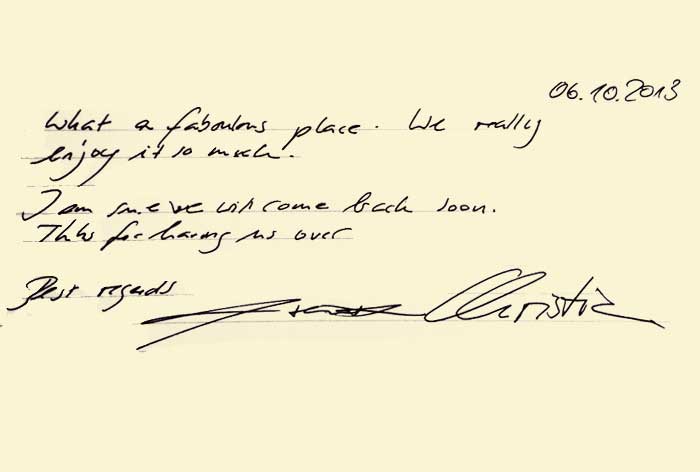 06.10.2013
What a faboulous place. We really
enjoy it so much.
I am sure we will come back soon.
Thks for having us over
Best regards
Christin